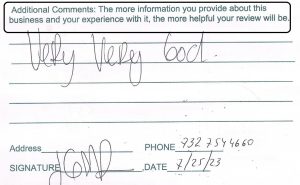 Additional Comments: The more information you provide about this
business and your experience with it, the more helpful your review will be.
Very Very Good.
Address
PHONE 732 754 4660
SIGNATURE
DATE 7/25/23